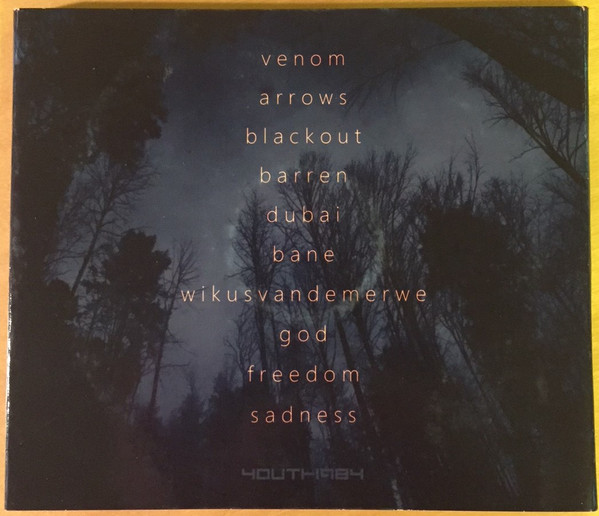 venom
arrows
blackout
barren
dubai
bane
wikusvandemerwe
god
freedom
sadness
YOUTH1984